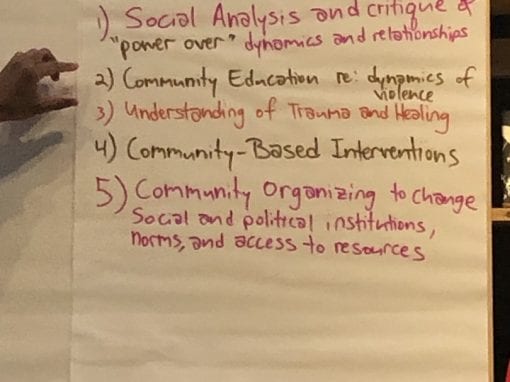 1) Social Analysis and critique of
"power over" dynamics and relationships
2) Community Education re: dynamics of
violence
3) Understanding of Trauma and Healing
4) Community-Based Interventions
5) Community Organizing to change
Social and political institutions,
norms, and access to resources